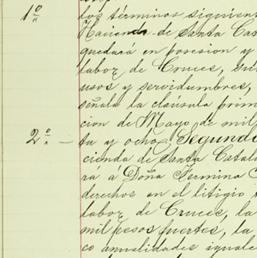 los términos siguien
1º Hacienda de Santa Ca
quedará en posesion y
labor de Cruces,
usos y servidumbres,
señala la cláusula prim
cion de Mayo de mil
2º — ta y ocho. Segundo
cienda de Santa Catal
rá á Doña Fermina
derechos en el litigio
labor de Cruces, la
mil pesos fuertes, la
co anualidades iguale